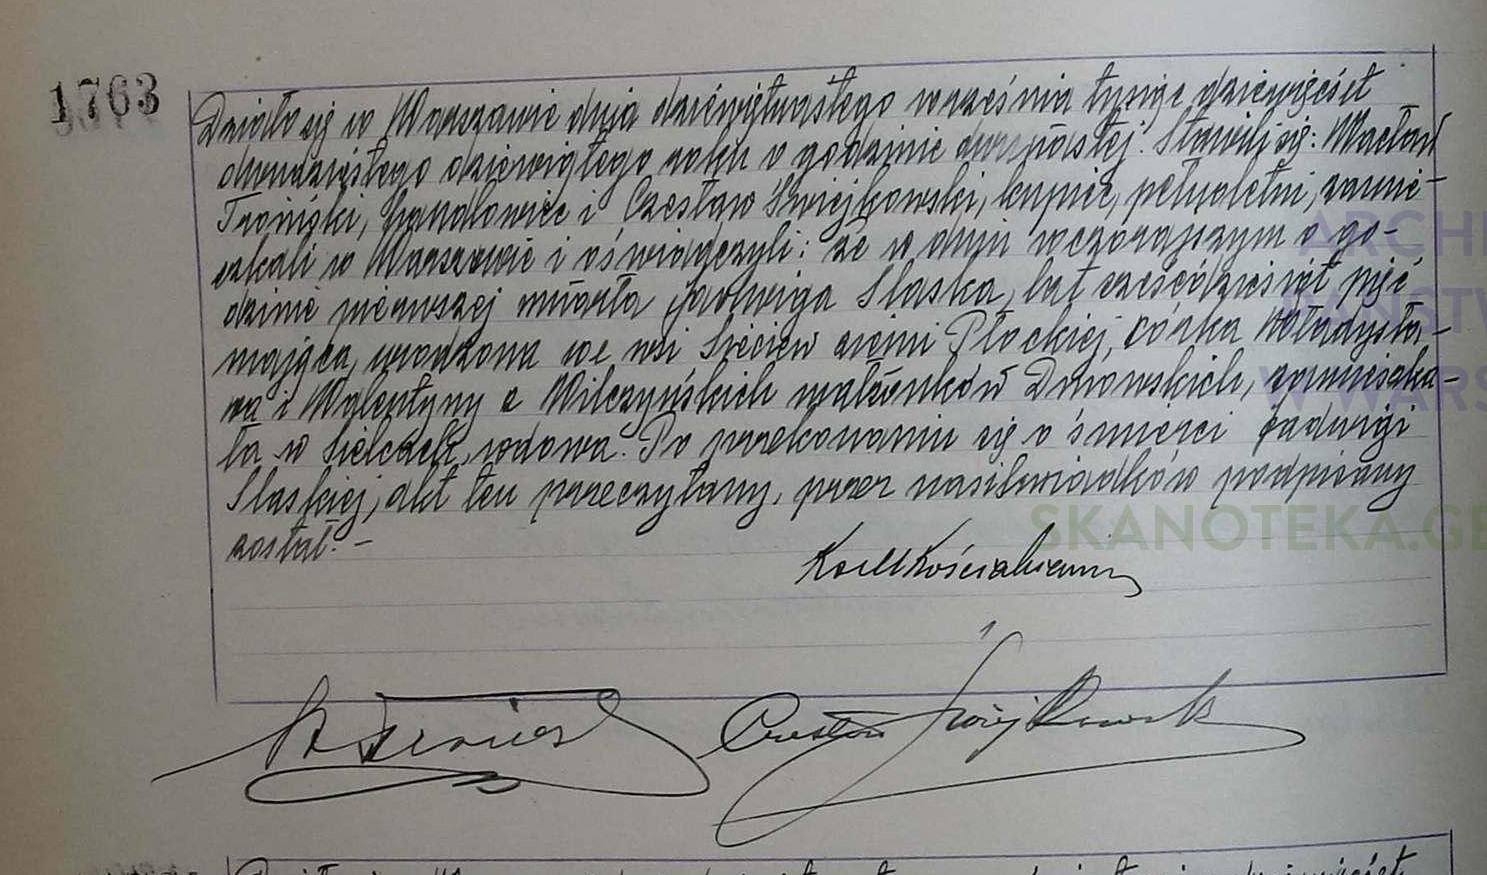 1763
Działo się w Warszawie dnia dziewiętnastego września tysiąc dziewięćset
dwudziestego dziewiątego roku o godzinie dwunastej. Stawili się: Wacław
Troiński, handlowiec i Czesław Świejkowski, kupiec, pełnoletni, zamie-
szkali w Warszawie i oświadczyli: że w dniu wczorajszym o go-
dzinie pierwszej umarła Jadwiga Slaska, lat sześćdziesiąt pięć
mająca, urodzona we wsi Sieciew ziemi Płockiej, córka Władysła-
wa i Walentyny z Wilczyńskich małżonków Dmowskich, zamieszka-
ła w Sielcach, wdowa. Po przekonaniu się o śmierci Jadwigi
Slaskiej, akt ten przeczytany, przez nas i świadków podpisany
został. -
ARCHI
PAŃSTW
W WARS
SKANOTEKA.GE